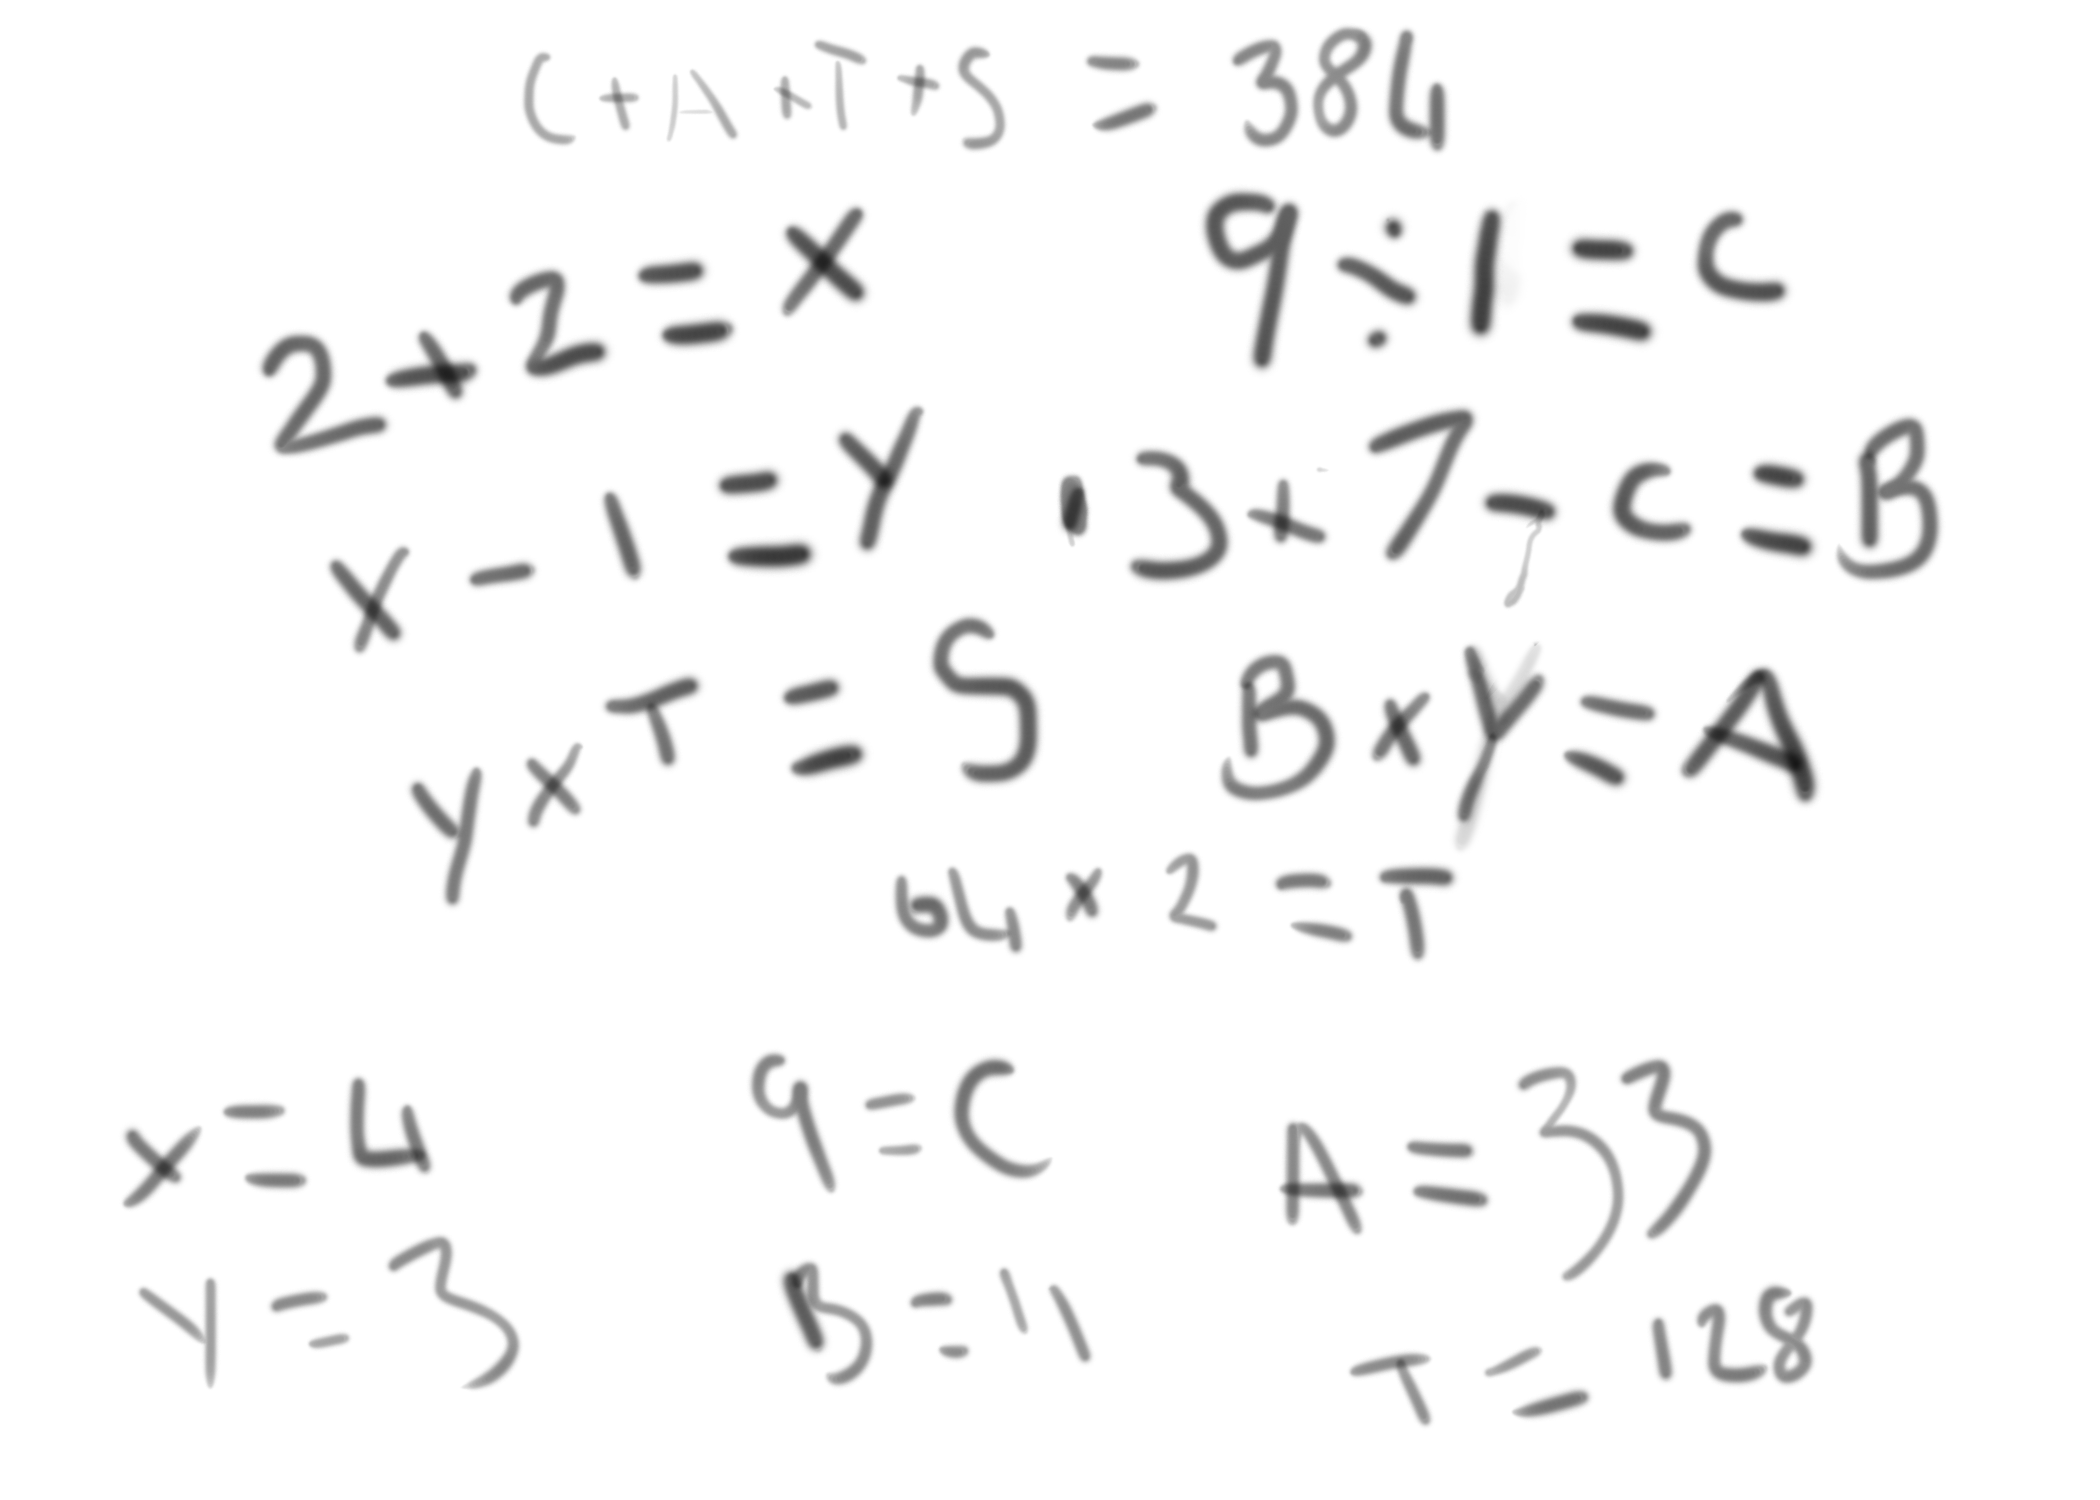 C + A + T + S = 384
2 + 2 = X
9 ÷ 1 = C
X - 1 = Y
13 + 7 - C = B
Y x T = S
B x Y = A
64 x 2 = T
X = 4
9 = C
A = 33
Y = 3
B = 11
T = 128